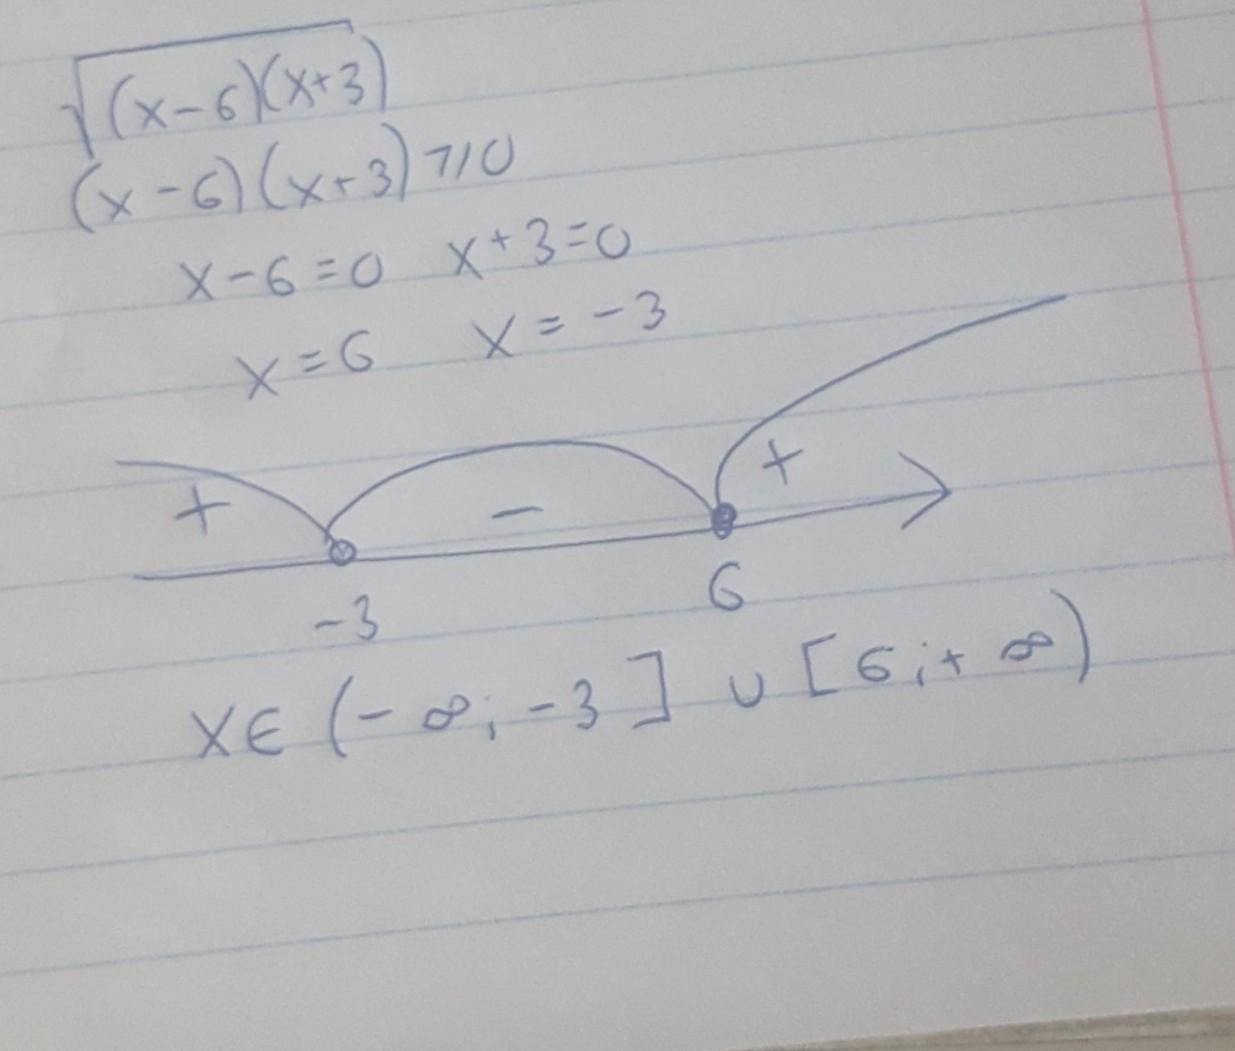 √(x-6)(x+3)
(x-6)(x+3)⩾0
x-6=0 x+3=0
x=6 x=-3
+ - +
-3 6
x∈(-∞;-3]∪[6;+∞)